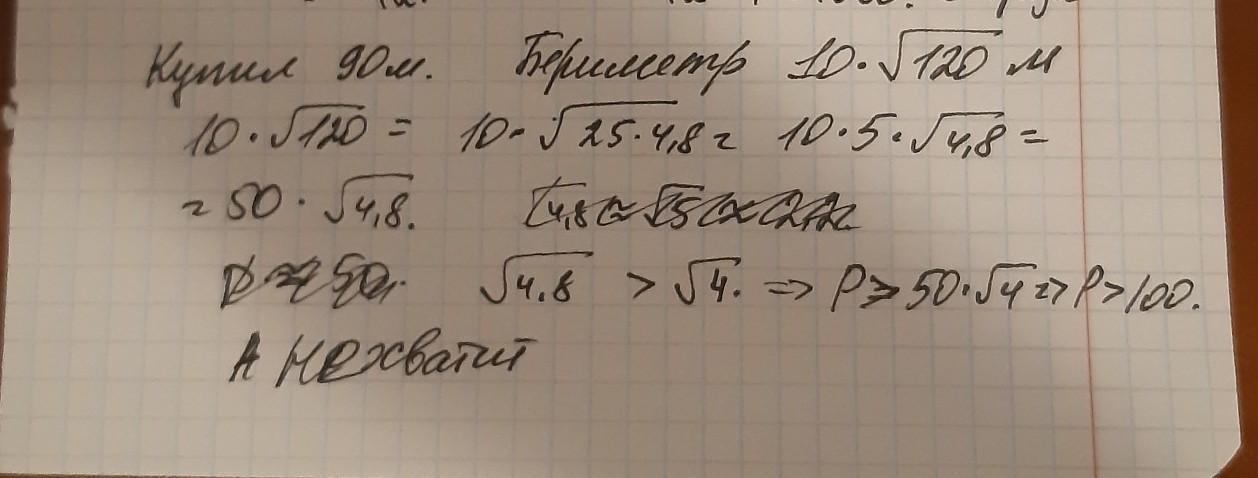 Купил 90м. Периметр 10·√120 м
10·√120 = 10·√25·4,8 = 10·5·√4,8 =
= 50·√4,8.
√4,8 > √4. => P > 50·√4 => P > 100.
А не хватит